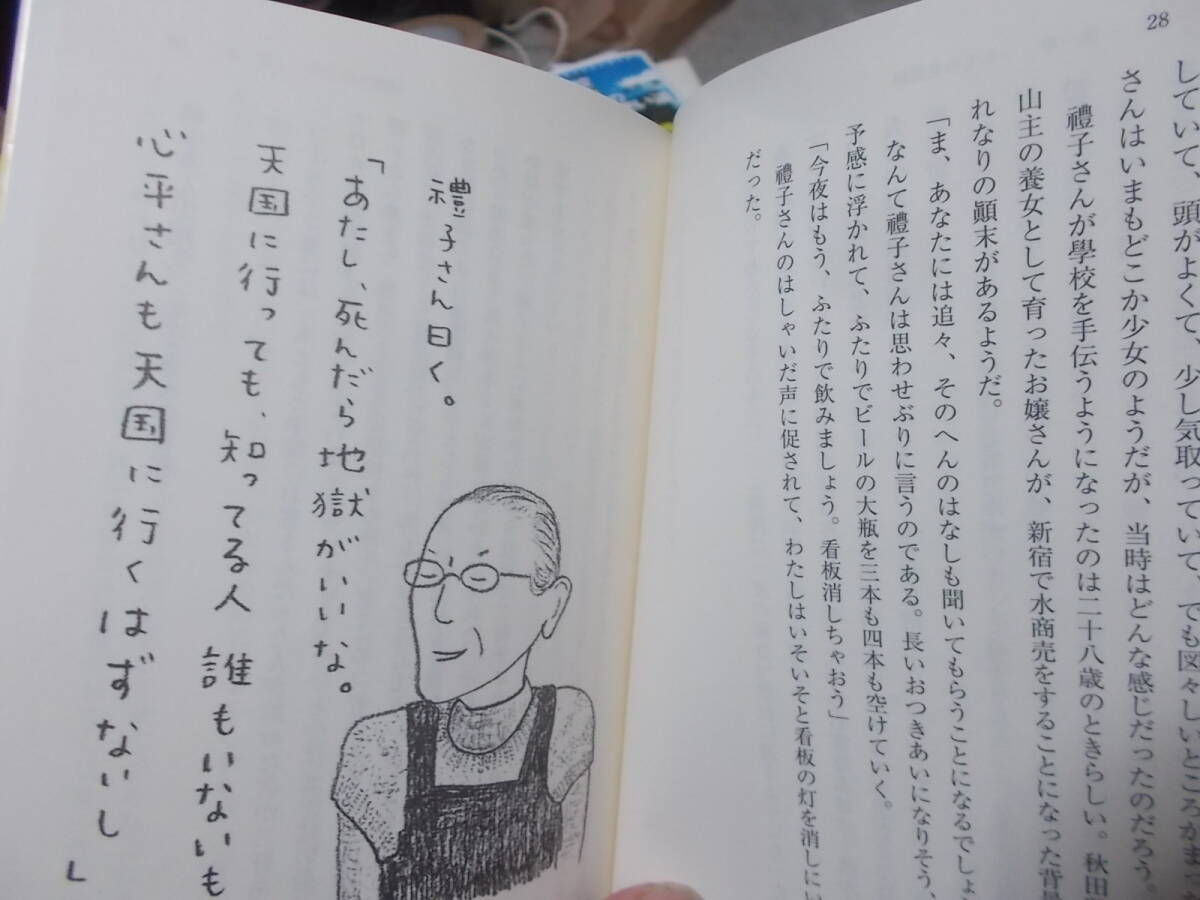 28
していて、頭がよくて、少し気取っていて、でも図々しいところがまった
さんはいまもどこか少女のようだが、当時はどんな感じだったのだろう。
禮子さんが學校を手伝うようになったのは二十八歳のときらしい。秋田
山主の養女として育ったお嬢さんが、新宿で水商売をすることになった背景
れなりの顚末があるようだ。
「ま、あなたには追々、そのへんのはなしも聞いてもらうことになるでしょ
なんて禮子さんは思わせぶりに言うのである。長いおつきあいになりそう、
予感に浮かれて、ふたりでビールの大瓶を三本も四本も空けていく。
「今夜はもう、ふたりで飲みましょう。看板消しちゃおう」
禮子さんのはしゃいだ声に促されて、わたしはいそいそと看板の灯を消しにい
だった。
禮子さん曰く。
「あたし、死んだら地獄がいいな。
天国に行っても、知ってる人誰もいないも
心平さんも天国に行くはずないし」